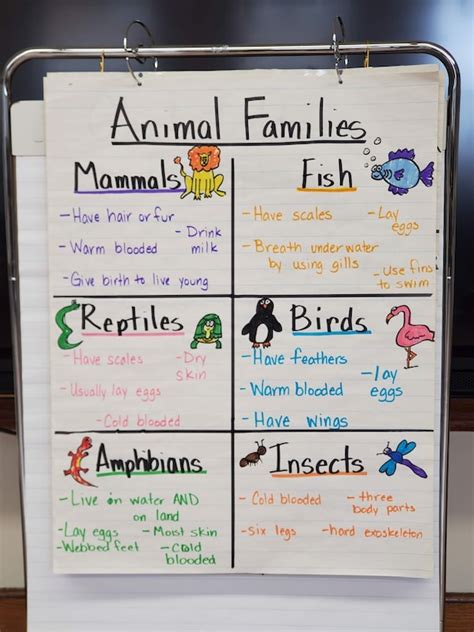 Animal Families
Mammals
-Have hair or fur
-Warm blooded
-Drink
milk
-Give birth to live young
Fish
-Have scales
-Lay
eggs
-Breath under water
by using gills
-Use fins
to swim
Reptiles
-Have scales
-Dry
skin
-Usually lay eggs
-Cold blooded
Birds
-Have feathers
-Warm blooded
-lay
eggs
-Have wings
Amphibians
-Live in water AND
on land
-Lay eggs
-Moist skin
-Webbed feet
-Cold
blooded
Insects
-Cold blooded
-three
body parts
-six legs
-hard exoskeleton